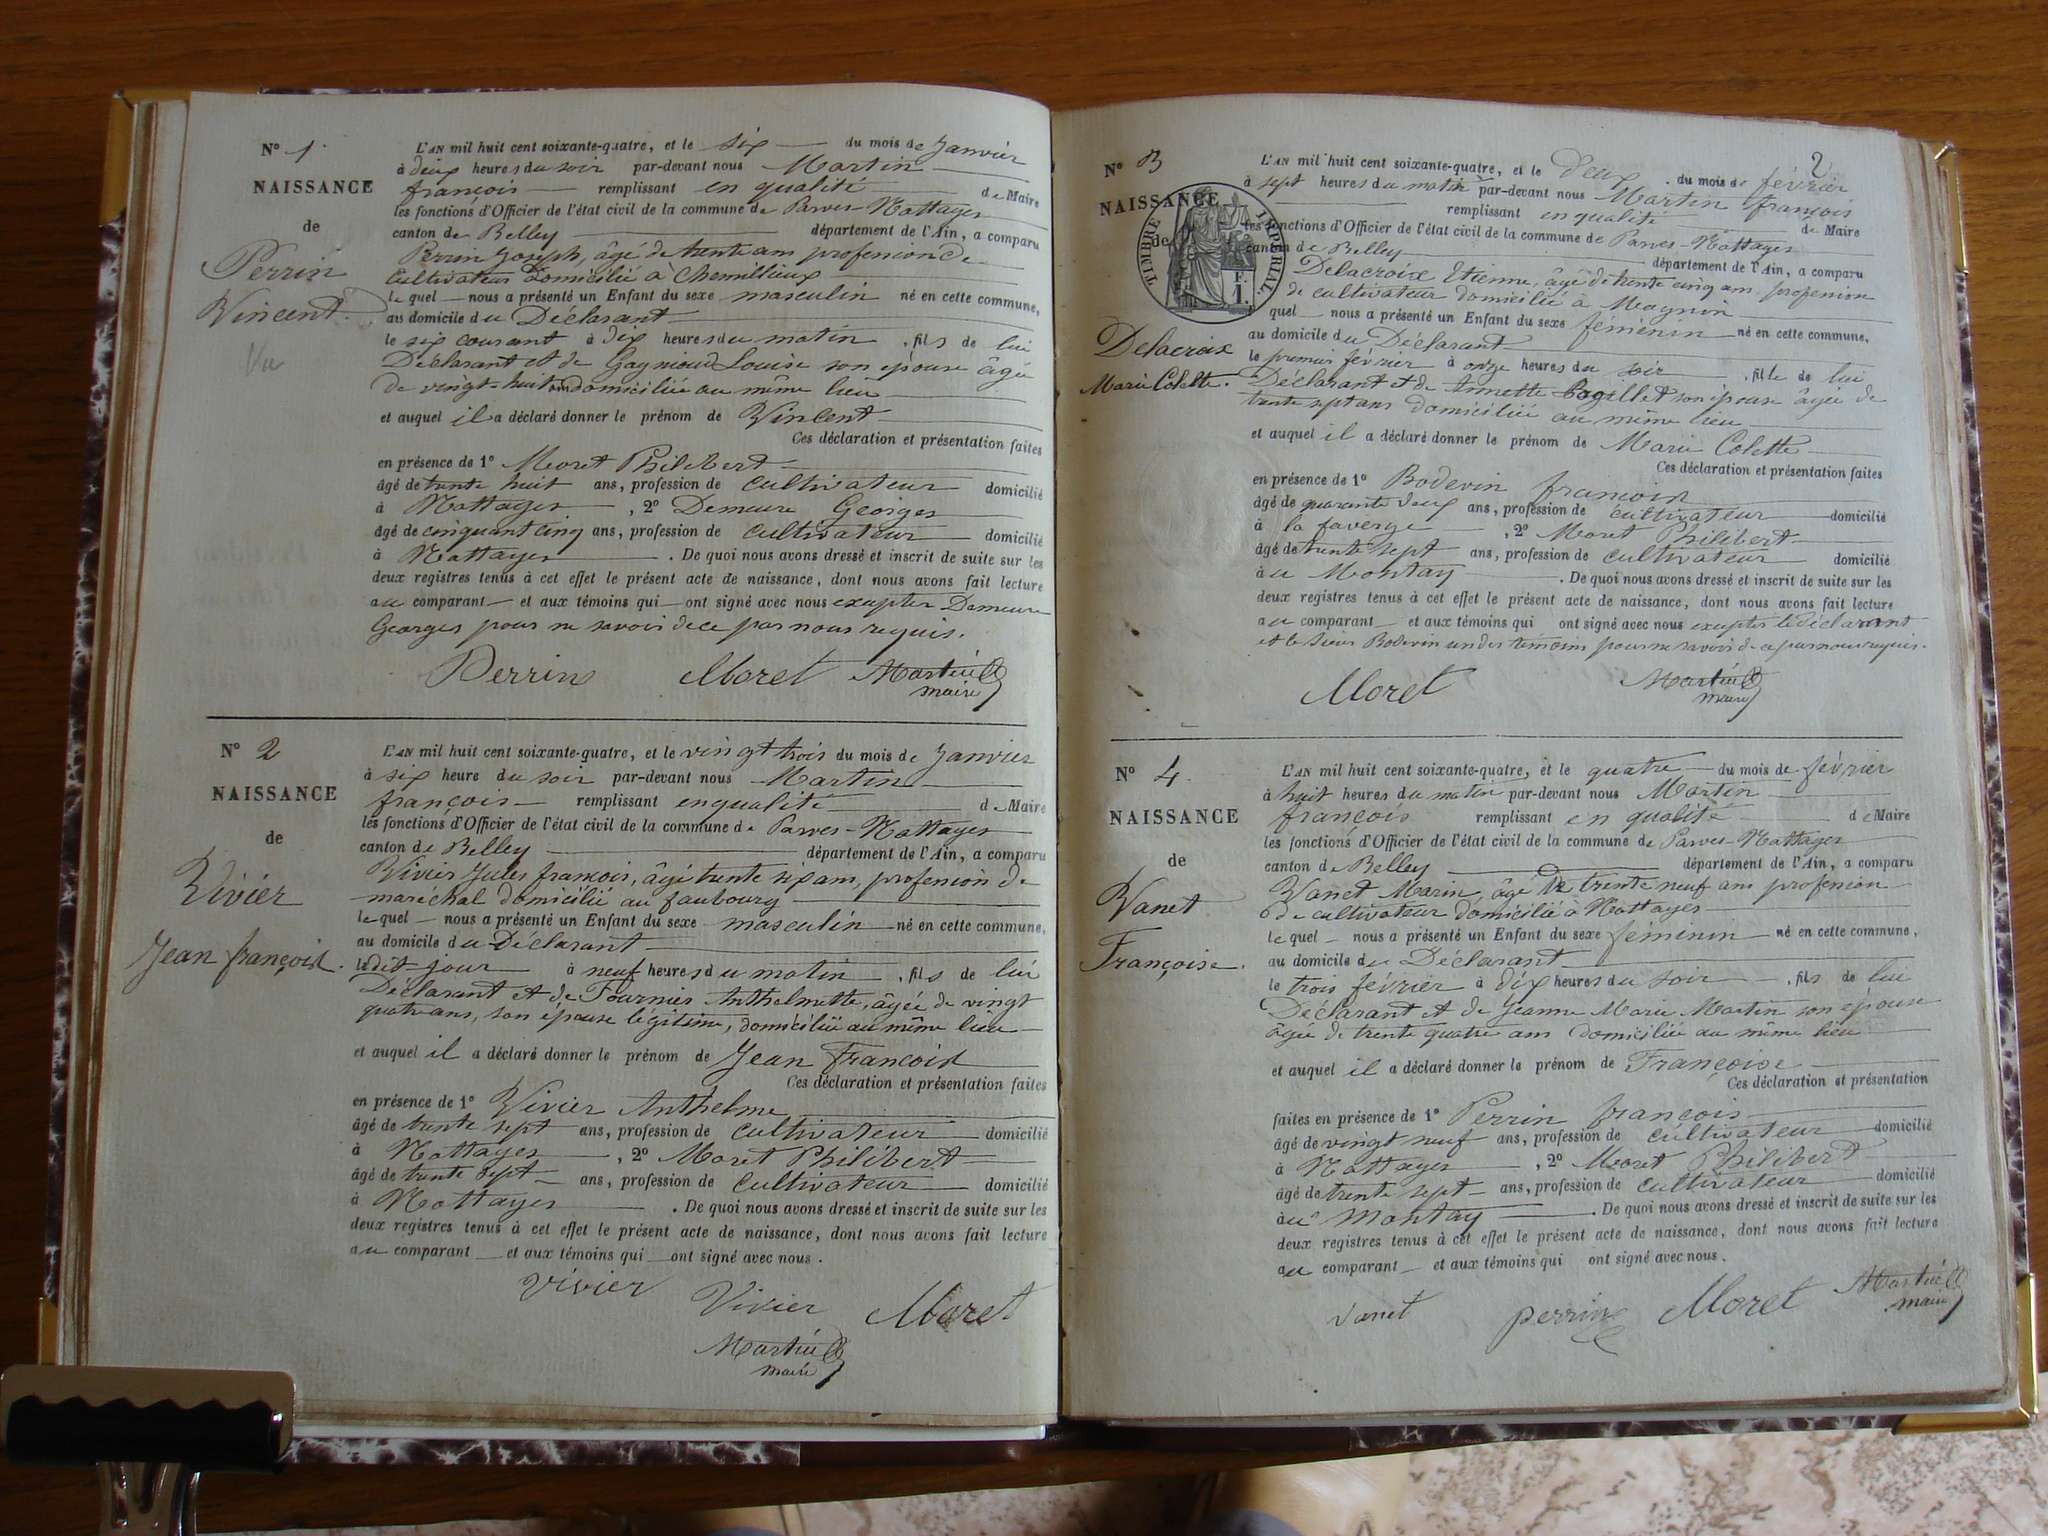 N° 1.
NAISSANCE
de
Perrin
Vincent.
Vu
L'AN mil huit cent soixante-quatre, et le six du mois de Janvier
à deux heures du soir par-devant nous Martin
françois remplissant en qualité de Maire
les fonctions d'Officier de l'état civil de la commune de Parves-Nattages
canton de Belley département de l'Ain, a comparu
Perrin Joseph, âgé de trente ans profession de
cultivateur domicilié à Chemillieux
le quel nous a présenté un Enfant du sexe masculin né en cette commune,
au domicile du Déclarant
le six courant à dix heures du matin, fils de lui
Déclarant et de Louise son épouse âgée
de vingt-huit ans domiciliée au même lieu
et auquel il a déclaré donner le prénom de Vincent
Ces déclaration et présentation faites
en présence de 1° Moret Philibert
âgé de trente huit ans, profession de cultivateur domicilié
à Nattages, 2° Demeure Georges
âgé de cinquant cinq ans, profession de cultivateur domicilié
à Nattages. De quoi nous avons dressé et inscrit de suite sur les
deux registres tenus à cet effet le présent acte de naissance, dont nous avons fait lecture
au comparant et aux témoins qui ont signé avec nous excepter Demeure
Georges pour ne savoir de ce par nous requis.
Perrin Moret Martin
maire
N° 2
NAISSANCE
de
Vivier
Jean françois.
L'AN mil huit cent soixante-quatre, et le vingt trois du mois de Janvier
à six heure du soir par-devant nous Martin
françois remplissant en qualité de Maire
les fonctions d'Officier de l'état civil de la commune de Parves-Nattages
canton de Belley département de l'Ain, a comparu
Vivier Jules françois, âgé trente six ans, profession de
maréchal domicilié au faubourg
le quel nous a présenté un Enfant du sexe masculin né en cette commune,
au domicile du Déclarant
le dit jour à neuf heures du matin, fils de lui
Déclarant et de Fournier Anthelmette, âgée de vingt
quatre ans, son épouse légitime, domiciliée au même lieu
et auquel il a déclaré donner le prénom de Jean François
Ces déclaration et présentation faites
en présence de 1° Vivier Anthelme
âgé de trente sept ans, profession de cultivateur domicilié
à Nattages, 2° Moret Philibert
âgé de trente sept ans, profession de cultivateur domicilié
à Nattages. De quoi nous avons dressé et inscrit de suite sur les
deux registres tenus à cet effet le présent acte de naissance, dont nous avons fait lecture
au comparant et aux témoins qui ont signé avec nous.
Vivier Vivier Moret
Martin
maire
2
N° 3
NAISSANCE
de
TIMBRE IMPERIAL
F.
1.
Delacroix
Marie Colette.
L'AN mil huit cent soixante-quatre, et le deux du mois de février
à sept heures du matin par-devant nous Martin françois
remplissant en qualité de Maire
les fonctions d'Officier de l'état civil de la commune de Parves-Nattages
canton de Belley département de l'Ain, a comparu
Delacroix Etienne, âgé de trente cinq ans, profession
de cultivateur domicilié à Magnin
quel nous a présenté un Enfant du sexe féminin né en cette commune,
au domicile du Déclarant
le premier février à onze heures du soir, fille de lui
Déclarant et de Annette son épouse âgée de
trente sept ans domiciliée au même lieu
et auquel il a déclaré donner le prénom de Marie Colette
Ces déclaration et présentation faites
en présence de 1° Boderin françois
âgé de quarante deux ans, profession de cultivateur domicilié
à la faverge, 2° Moret Philibert
âgé de trente sept ans, profession de cultivateur domicilié
au Montay. De quoi nous avons dressé et inscrit de suite sur les
deux registres tenus à cet effet le présent acte de naissance, dont nous avons fait lecture
au comparant et aux témoins qui ont signé avec nous excepter le déclarant
et le sieur Boderin un des témoins pour ne savoir de ce par nous requis.
Moret Martin
maire
N° 4.
NAISSANCE
de
Vanet
Françoise.
L'AN mil huit cent soixante-quatre, et le quatre du mois de février
à huit heures du matin par-devant nous Martin
françois remplissant en qualité de Maire
les fonctions d'Officier de l'état civil de la commune de Parves-Nattages
canton de Belley département de l'Ain, a comparu
Vanet Marin, âgé de trente neuf ans profession
de cultivateur domicilié à Nattages
le quel nous a présenté un Enfant du sexe féminin né en cette commune,
au domicile du Déclarant
le trois février à dix heures du soir, fils de lui
Déclarant et de Jeanne Marie Martin son épouse
âgée de trente quatre ans domiciliée au même lieu
et auquel il a déclaré donner le prénom de Françoise
Ces déclaration et présentation
faites en présence de 1° Perrin françois
âgé de vingt neuf ans, profession de cultivateur domicilié
à Nattages, 2° Moret Philibert
âgé de trente sept ans, profession de cultivateur domicilié
au Montay. De quoi nous avons dressé et inscrit de suite sur les
deux registres tenus à cet effet le présent acte de naissance, dont nous avons fait lecture
au comparant et aux témoins qui ont signé avec nous.
Vanet perrin Moret Martin
maire